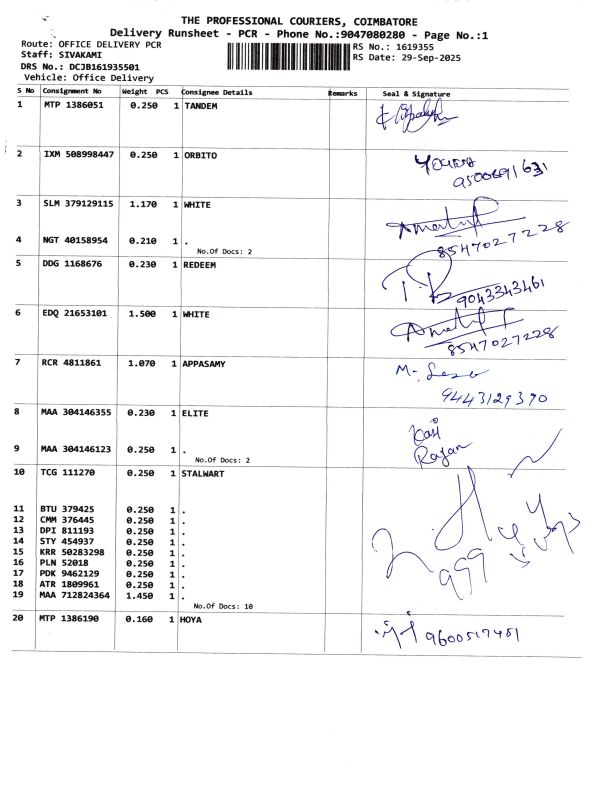 THE PROFESSIONAL COURIERS, COIMBATORE
Delivery Runsheet - PCR - Phone No.:9047080280 - Page No.:1
Route: OFFICE DELIVERY PCR
RS No.: 1619355
Staff: SIVAKAMI
RS Date: 29-Sep-2025
DRS No.: DCJB161935501
Vehicle: Office Delivery
S No Consignment No Weight PCS Consignee Details Remarks Seal & Signature
1 MTP 1386051 0.250 1 TANDEM
2 IXM 508998447 0.250 1 ORBITO
9500691631
3 SLM 379129115 1.170 1 WHITE
4 NGT 40158954 0.210 1 .
8547027228
No.Of Docs: 2
5 DDG 1168676 0.230 1 REDEEM
9043343461
6 EDQ 21653101 1.500 1 WHITE
8547027228
7 RCR 4811861 1.070 1 APPASAMY
9443129390
8 MAA 304146355 0.230 1 ELITE
Rajan
9 MAA 304146123 0.250 1 .
No.Of Docs: 2
10 TCG 111270 0.250 1 STALWART
11 BTU 379425 0.250 1 .
12 CMM 376445 0.250 1 .
13 DPI 811193 0.250 1 .
14 STY 454937 0.250 1 .
15 KRR 50283298 0.250 1 .
16 PLN 52018 0.250 1 .
17 PDK 9462129 0.250 1 .
18 ATR 1809961 0.250 1 .
19 MAA 712824364 1.450 1 .
No.Of Docs: 10
20 MTP 1386190 0.160 1 HOYA
9600517451